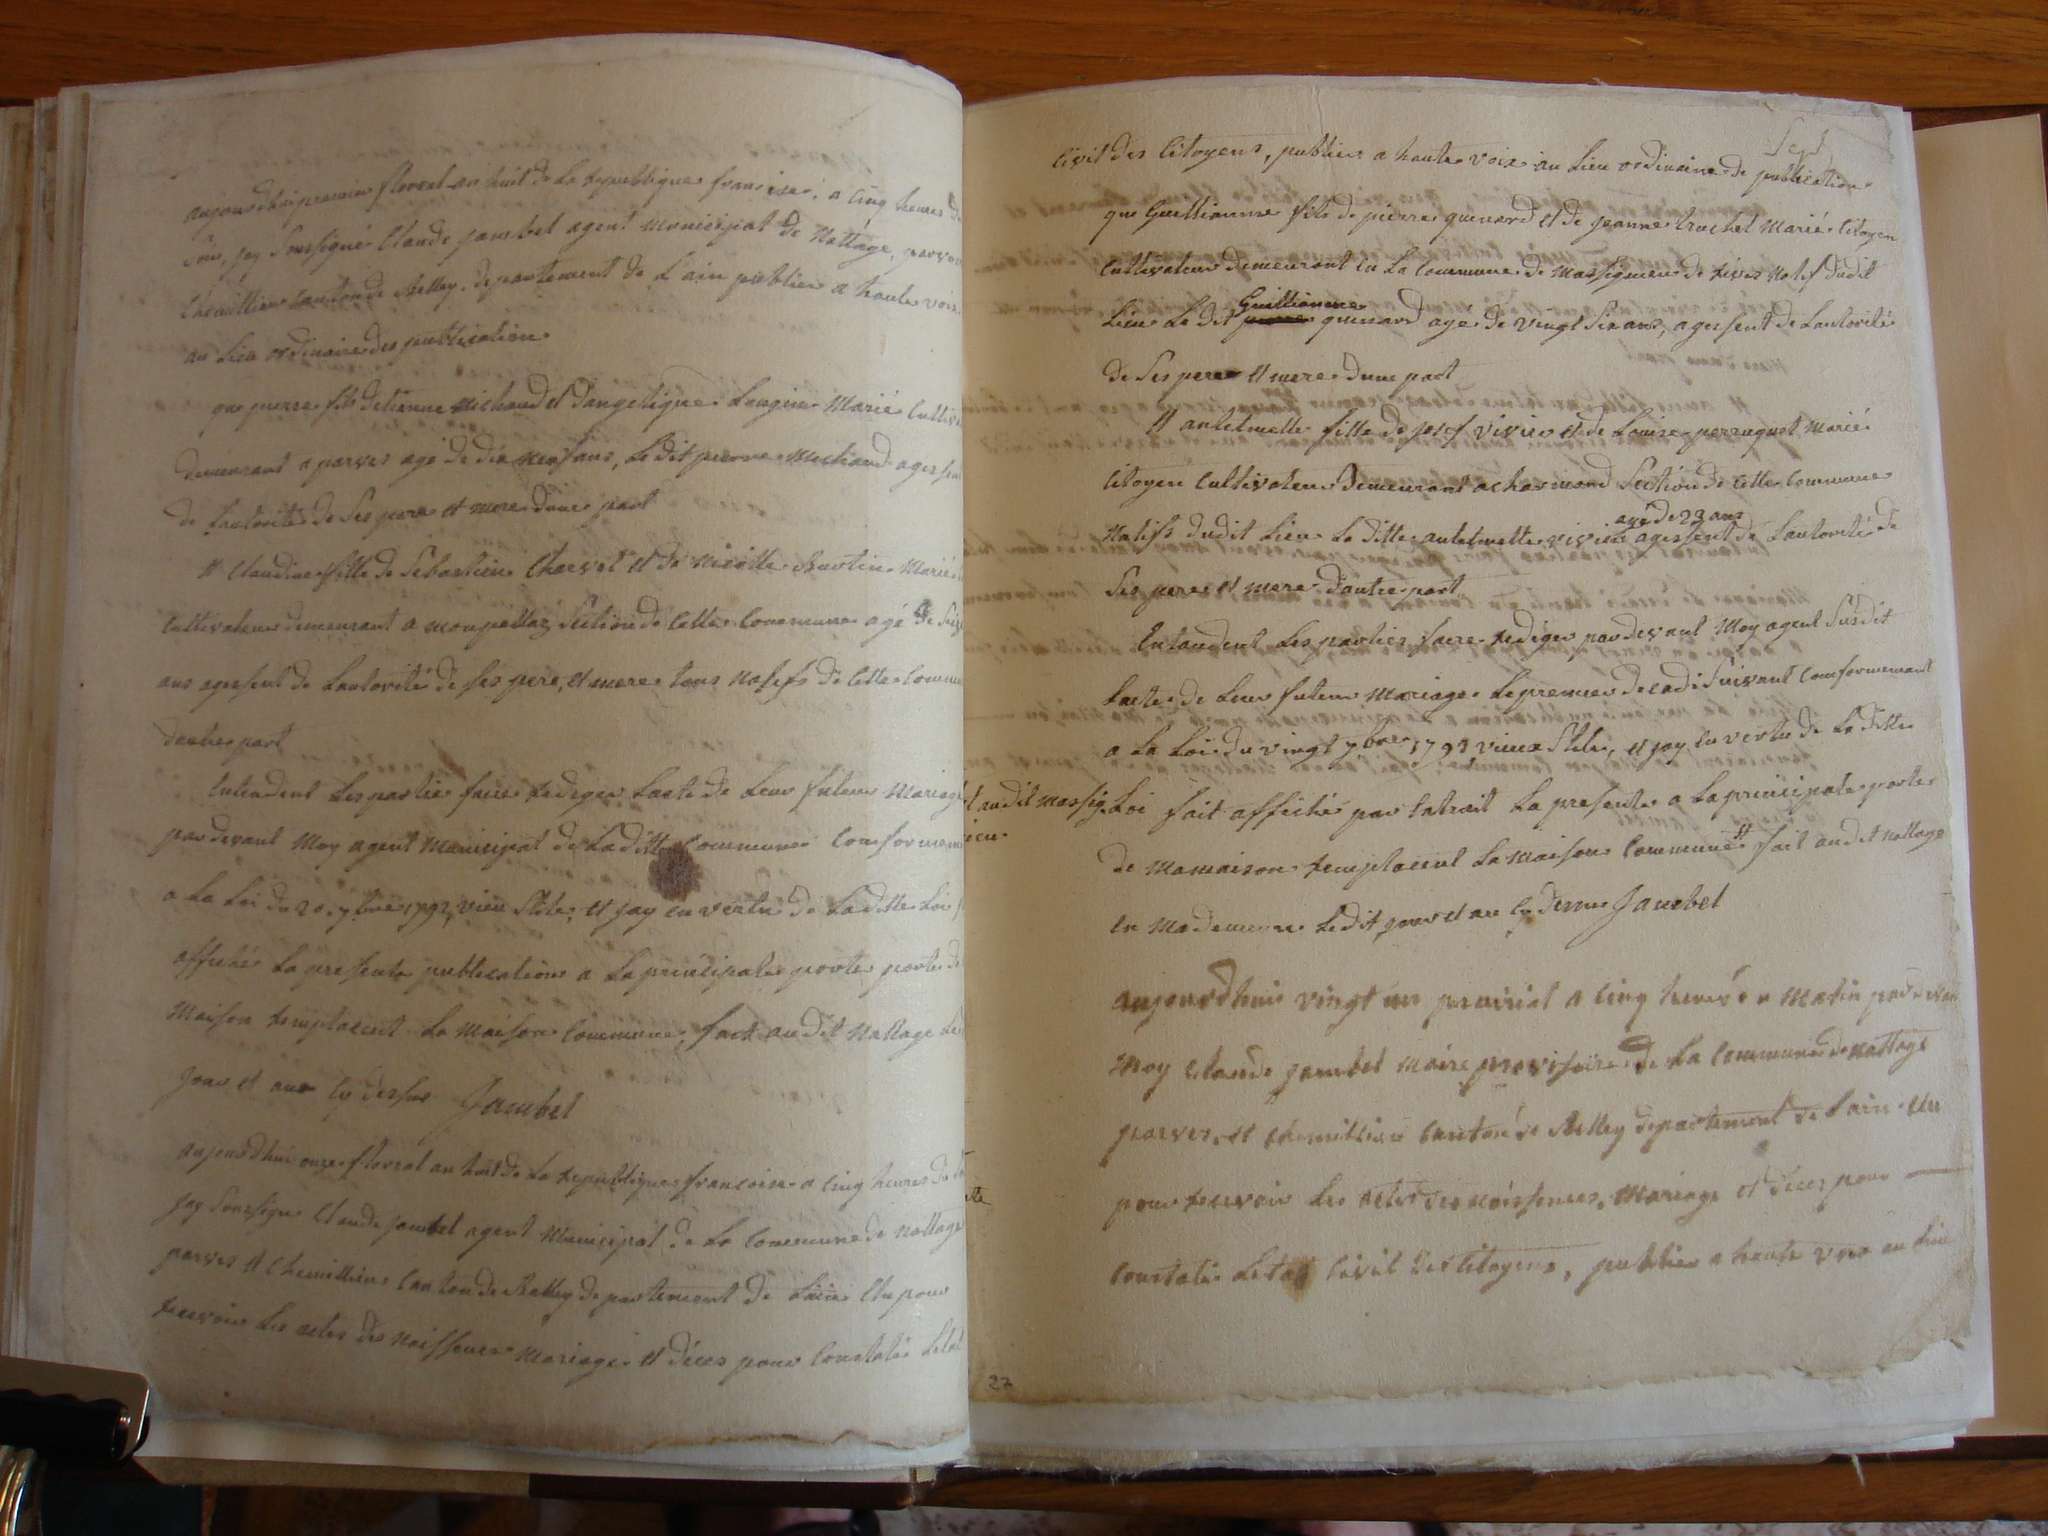 aujourdhui premier floreal an huit de la republique francoise, a cinq heures du
soir, jay soussigné Claude jambet agent municipal de Nattage, parves
Chemillieu canton de Belley, departement de Lain publier a haute voix
au lieu ordinaire des publication
que pierre fils detienne Michaud et dangelique Marié cultiva
demeurant a parves agé de dix neuf ans, Ledit pierre Michaud agissent
de Lautorité de ses pere et mere dune part
et Claudine fille de Sebastien Charvet et de Martin Marié
cultivateur demeurant a Section de cette commune agé de
ans agissent de Lautorité de ses pere, et mere tous natifs de cette commune
dautre part
Entendent Les partie faire rediger Lacte de Leur futeur Mariage
par devant Moy agent Municipal de Laditte Commune conformement
a La Loi du 20. 7bre 1792, vieu Stile, et jay en vertu de Laditte Loi
affiché La presente publication a La principale porte porte de
Maison remplacent La Maison Commune, fait audit Nattage Le
jour et an cy dessus Jambet
aujourdhui onze floreal an huit de La republique francoise a cinq heures du
jay Soussigne Claude jambet agent Municipal de La Commune de nattage
parves et Chemillieu Canton de Belley departement de Lain Elu pour
recevoir Les actes des naissences Mariage et déces pour Constaté Letat
Sept
civil des Citoyens, publier a haute voix au Lieu ordinaire de publication
que Guillianme fils de pierre guinard et de jeanne trochet Marié Citoyen
cultivateur demeurant en La Commune de Massignieu de rives natif dudit
Guillianme
Lieu Le dit pierre guinard agé de vingt six ans, agissent de Lautorité
de Ses pere et mere dune part
et antelmette fille de josef vivier et de Louise perruquet Marié
Citoyen Cultivateur Demeurant a charmond Section de cette Commune
agé de 23 ans
Natifs dudit Lieu La ditte antelmette vivier agissent de Lautorité de
Ses pere et mere dautre part
Entendent Les parties faire rediger par devant Moy agent Susdit
Lacte de Leur futeur Mariage Le premier decadi Suivant conformement
a La Loi du vingt 7bre 1792 vieux Stile, et jay en vertu de La ditte
et audit massig
nieu
Loi fait affiché par Extrait La presente a La principale porte
de Mamaison remplacent La Maison Commune et fait audit nattage
en Mademeure Ledit jour et an cy dessus Jambet
aujourdhui vingt un prairial a cinq heures du Matin par devant
Moy Claude jambet Maire provisoire de La Commune de Nattage
parves, et chemillieu canton de Belley departement de Lain Elu
pour recevoir Les actes des naissences, Mariage et déces pour
Constaté Letat Civil des Citoyens, publier a haute voix au Lieu
27